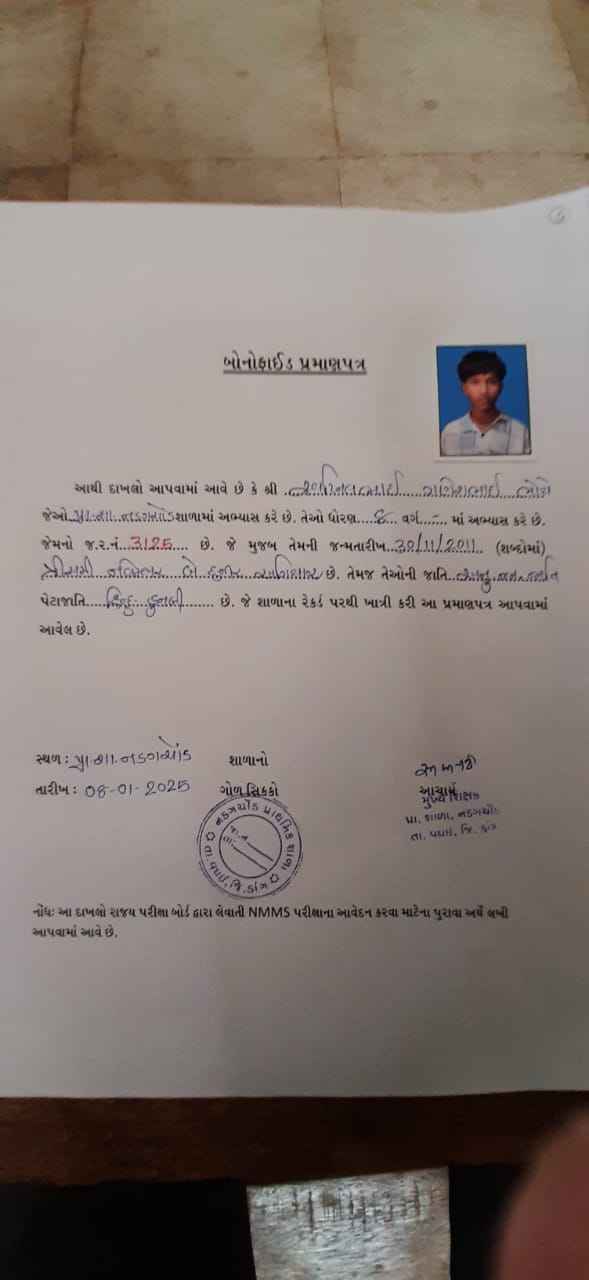 બોનોફાઈડ પ્રમાણપત્ર
આથી દાખલો આપવામાં આવે છે કે શ્રી
જેઓ પ્રા.શા. નડગચોંડ શાળામાં અભ્યાસ કરે છે. તેઓ ધોરણ ૮ વર્ગ - માં અભ્યાસ કરે છે.
જેમનો જ.ર.નં. 3125 છે. જે મુજબ તેમની જન્મતારીખ 30/11/2011 (શબ્દોમાં)
ત્રીસમી નવેમ્બર બે હજાર અગિયાર છે. તેમજ તેઓની જાતિ અનુ. જન જાતિ
પેટાજાતિ હિન્દુ કુનબી છે. જે શાળાના રેકર્ડ પરથી ખાત્રી કરી આ પ્રમાણપત્ર આપવામાં
આવેલ છે.
સ્થળ : પ્રા.શા. નડગચોંડ શાળાનો
તારીખ : 08-01-2025 ગોળ સિક્કો આચાર્ય
મુખ્ય શિક્ષક
પ્રા. શાળા, નડગચોંડ
તા. વઘઇ, જિ. ડાંગ
નડગચોંડ પ્રાથમિક શાળા
તા. વઘઇ, જિ. ડાંગ
નોંધઃ આ દાખલો રાજય પરીક્ષા બોર્ડ દ્વારા લેવાતી NMMS પરીક્ષાના આવેદન કરવા માટેના પુરાવા અર્થે લખી
આપવામાં આવે છે.